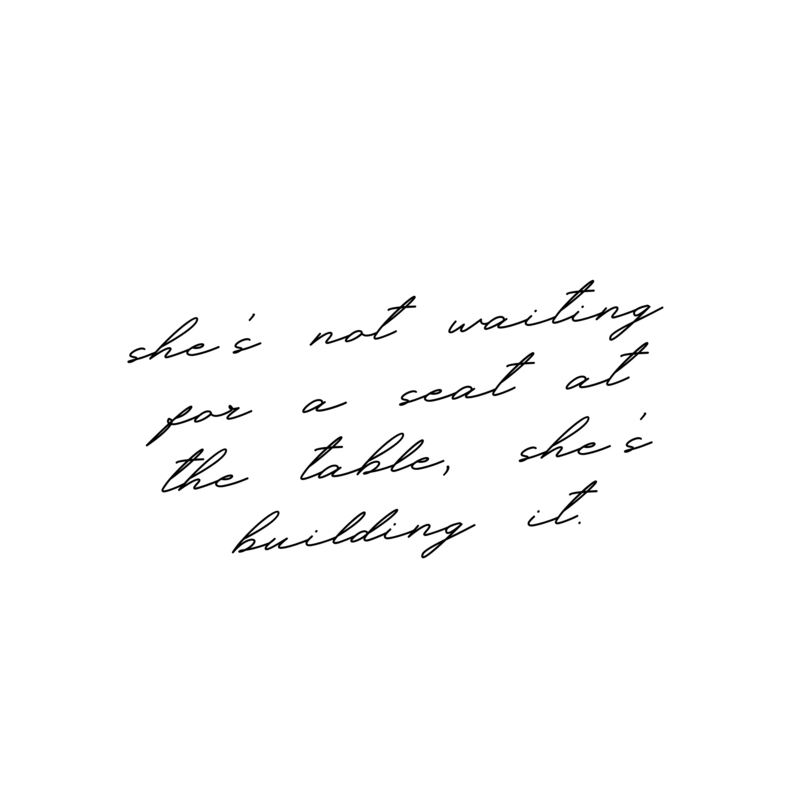 she's not waiting
for a seat at
the table, she's
building it.